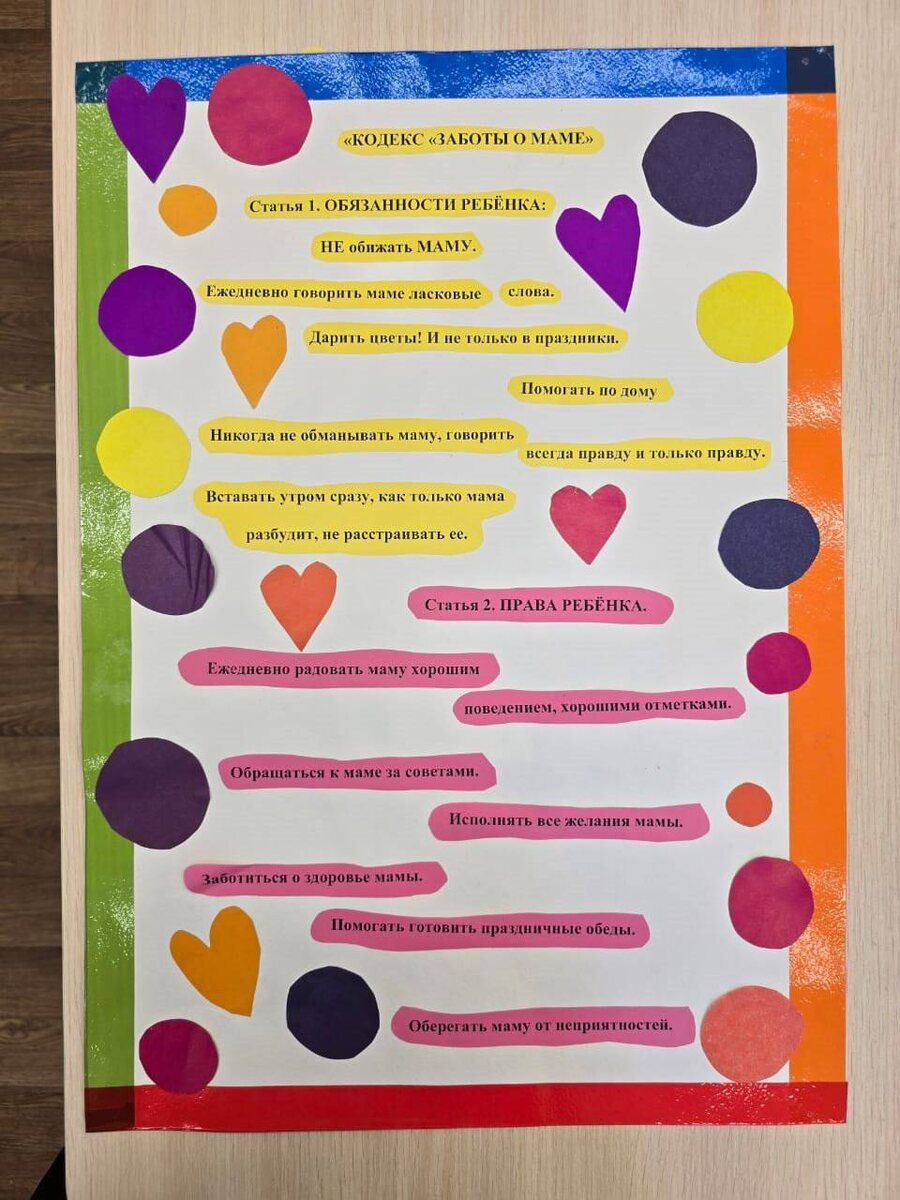 «КОДЕКС «ЗАБОТЫ О МАМЕ»
Статья 1. ОБЯЗАННОСТИ РЕБЁНКА:
НЕ обижать МАМУ.
Ежедневно говорить маме ласковые слова.
Дарить цветы! И не только в праздники.
Помогать по дому
Никогда не обманывать маму, говорить
всегда правду и только правду.
Вставать утром сразу, как только мама
разбудит, не расстраивать ее.
Статья 2. ПРАВА РЕБЁНКА.
Ежедневно радовать маму хорошим
поведением, хорошими отметками.
Обращаться к маме за советами.
Исполнять все желания мамы.
Заботиться о здоровье мамы.
Помогать готовить праздничные обеды.
Оберегать маму от неприятностей.